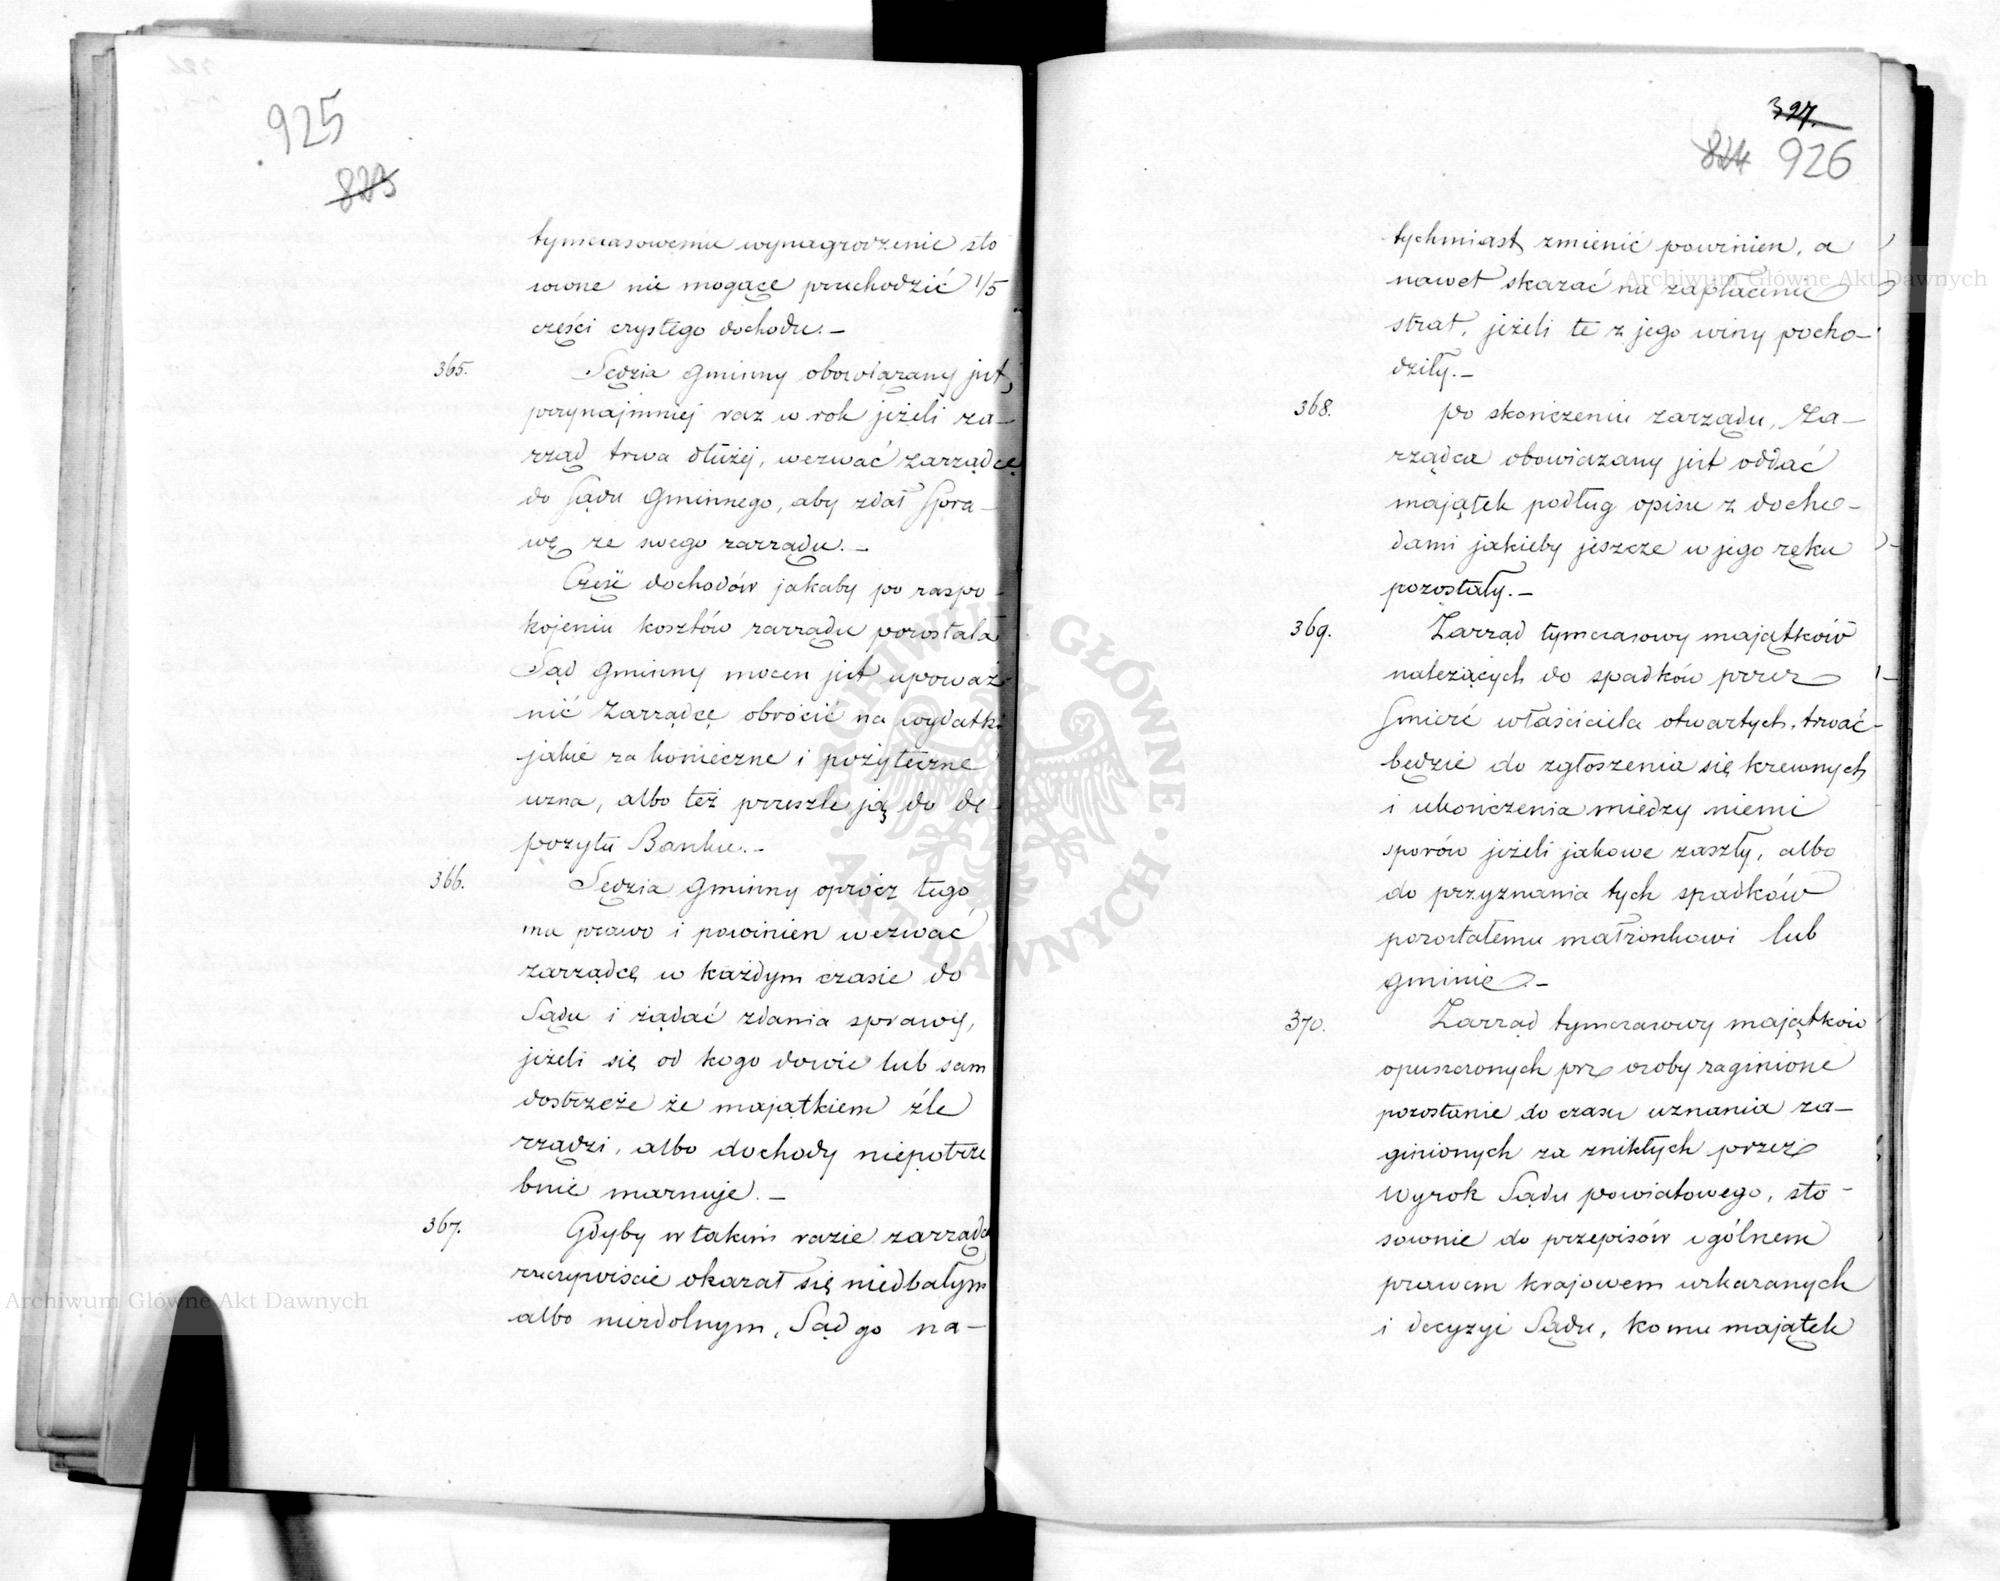 925
823
tymczasowemu wynagrodzenie sto
sowne nie mogące przechodzić 1/5
części czystego dochodu.-
365. Sędzia Gminny obowiązany jest,
przynajmniej raz w rok jeżeli za-
rząd trwa dłużej, wezwać zarządcę
do Sądu Gminnego, aby zdał Spra-
wę ze swego zarządu.-
Część dochodów jakaby po zaspo-
kojeniu kosztów zarządu pozostała
Sąd Gminny mocen jest upoważ
nić Zarządcę obrócić na wydatki
jakie za konieczne i pożyteczne
uzna, albo też prześle ją do de-
pozytu Banku.-
366. Sędzia Gminny oprócz tego
ma prawo i powinien wezwać
zarządcę w każdym czasie do
Sądu i żądać zdania sprawy,
jeżeli się od kogo dowie lub sam
dostrzeże że majątkiem źle
rządzi, albo dochody niepotrze
bnie marnuje.-
367. Gdyby w takim razie zarządca
rzeczywiście okazał się niedbałym
albo niezdolnym, Sąd go na-
397.
824 926
tychmiast zmienić powinien, a
nawet skazać na zapłacenie
strat, jeżeli te z jego winy pocho-
dziły.-
368. po skończeniu zarządu, Za-
rządca obowiazany jest oddać
majątek podług opisu z docho-
dami jakieby jeszcze w jego ręku
pozostały.-
369. Zarząd tymczasowy majątków
należących do spadków przez
Smierć właściciela otwartych, trwać
będzie do zgłoszenia się krewnych
i ukończenia między niemi
sporów jeżeli jakowe zaszły, albo
do przyznania tych spadków
pozostałemu małżonkowi lub
gminie.-
370. Zarząd tymczasowy majątków
opuszczonych prz osoby zaginione
pozostanie do czasu uznania za-
ginionych za znikłych przez
Wyrok Sądu powiatowego, sto-
sownie do przepisów ogólnem
prawem krajowem wskazanych
i decyzyi Sądu, komu majątek
Archiwum Główne Akt Dawnych
Archiwum Główne Akt Dawnych
ARCHIWUM GŁÓWNE · AKT DAWNYCH ·